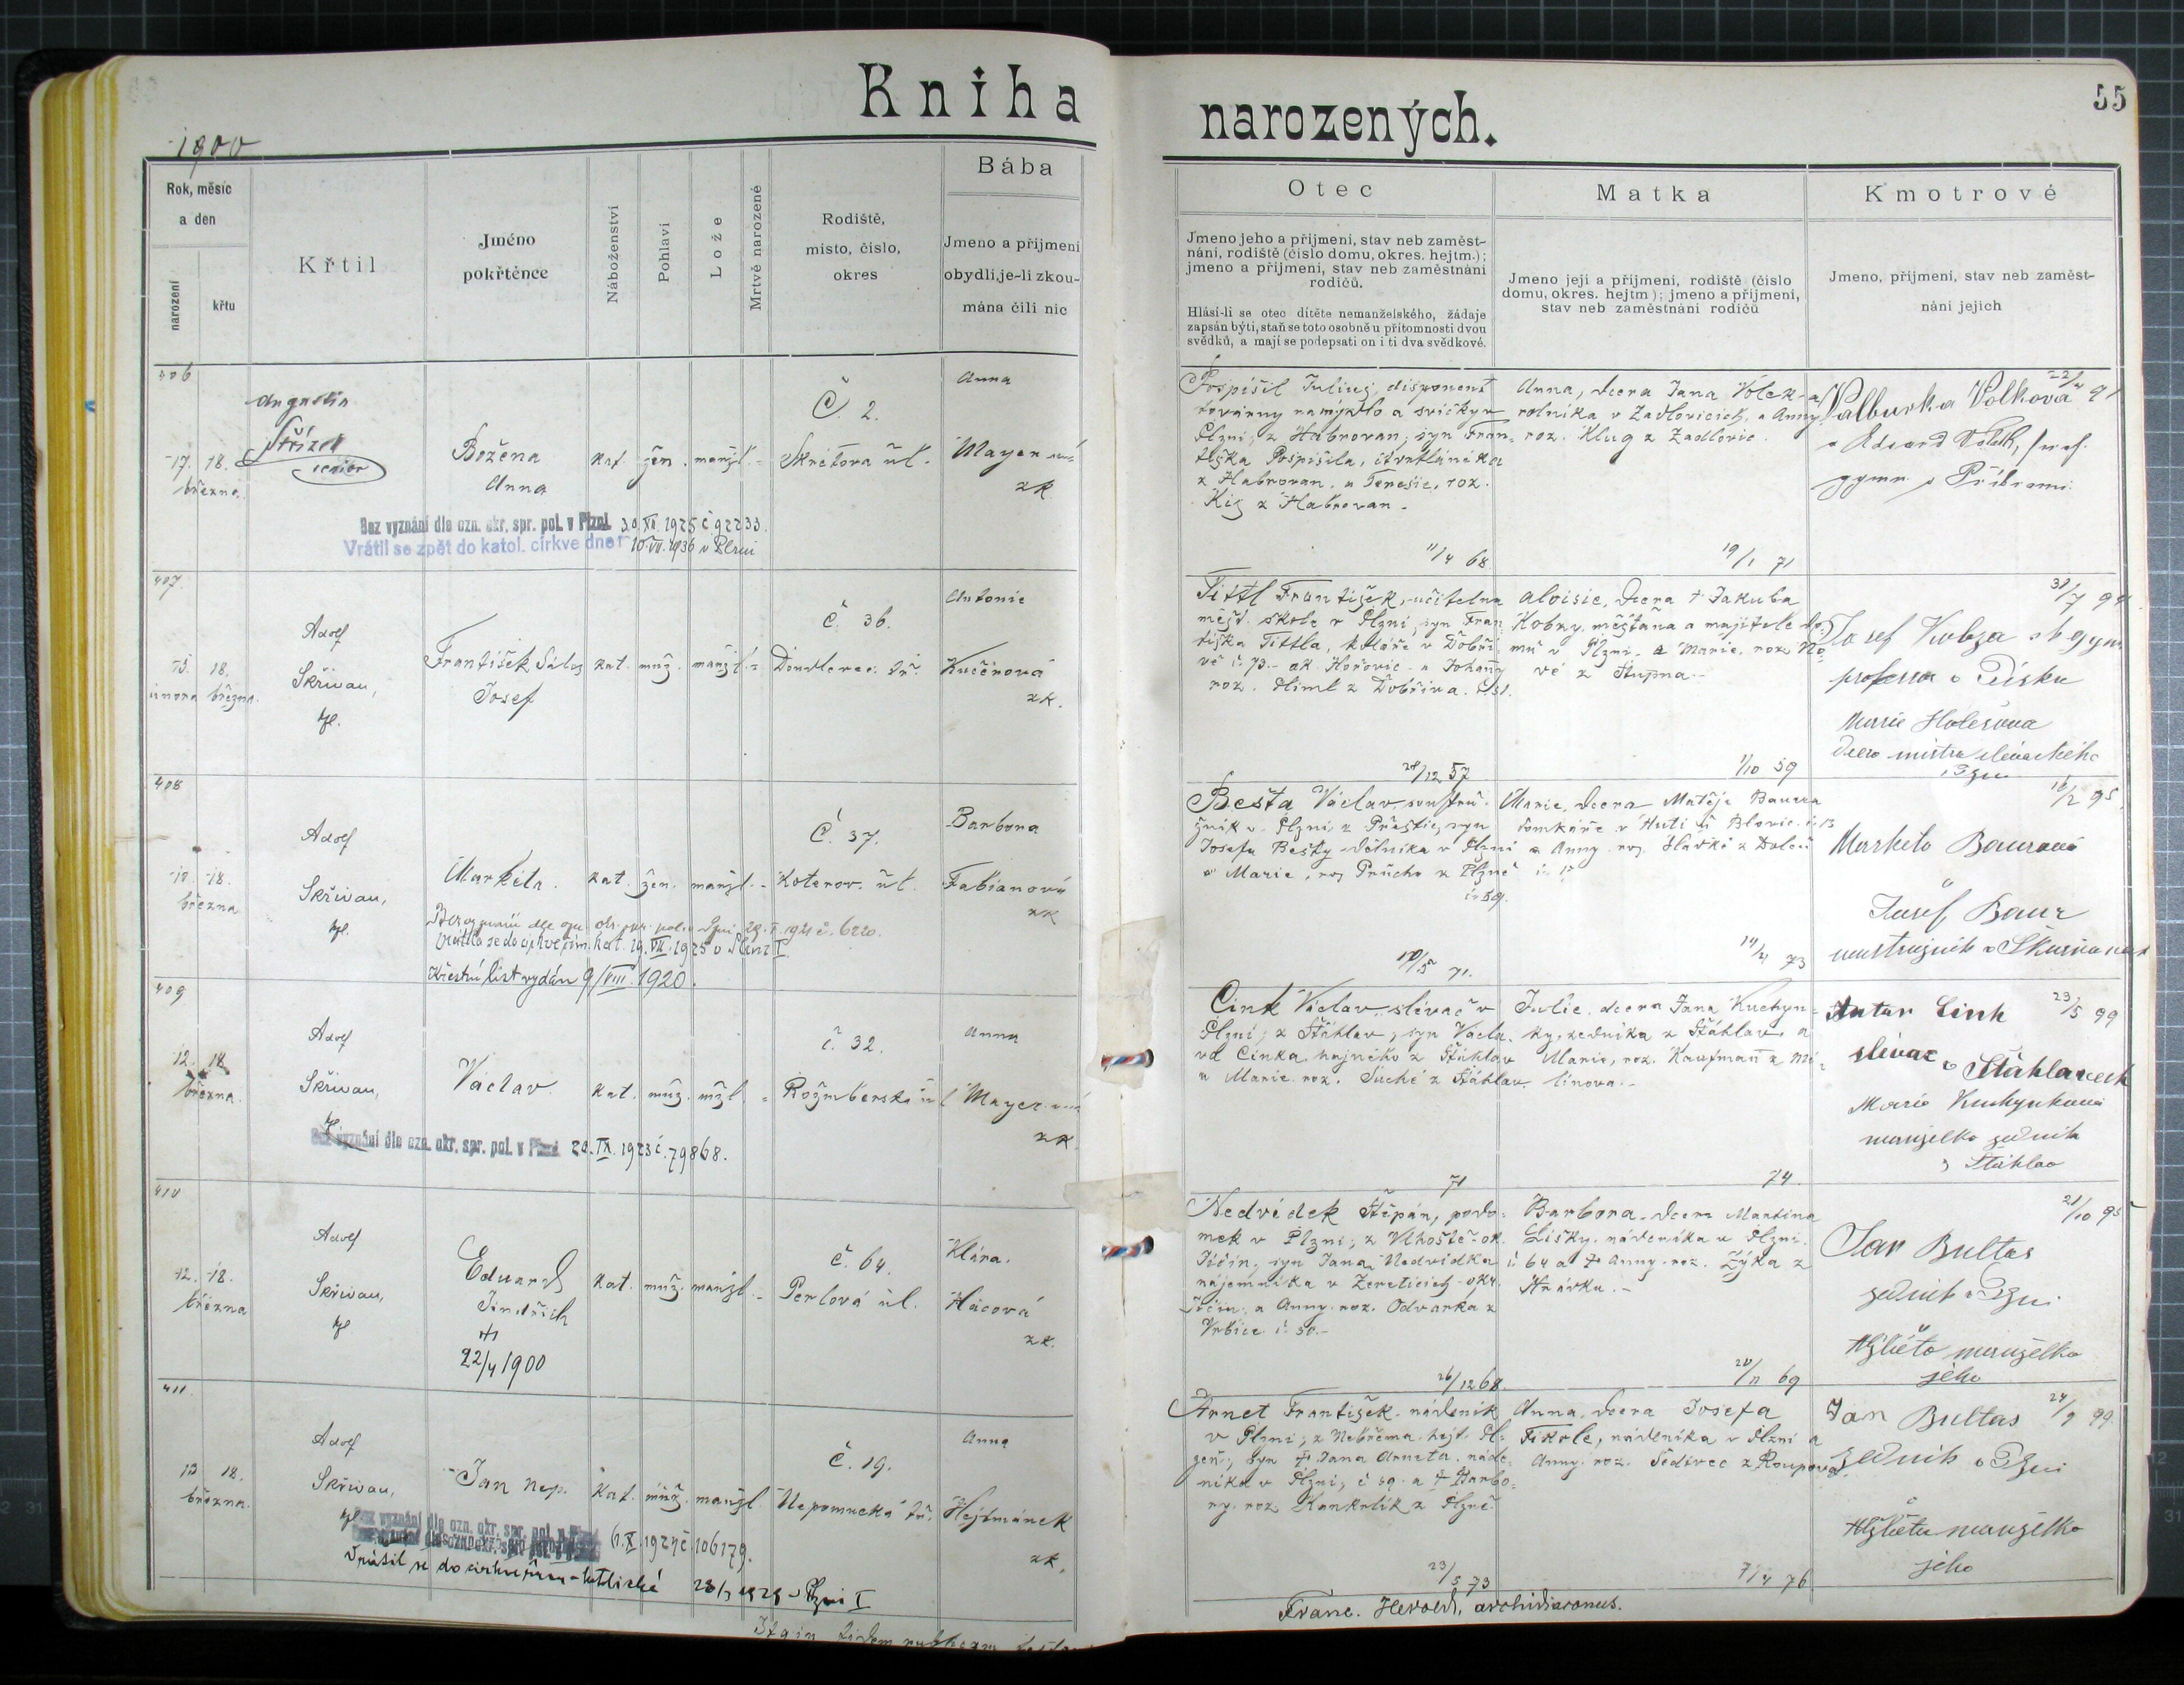 Kniha narozených.
55
1900
Rok, měsíc
a den
narození
křtu
Křtil
Jméno
pokřtěnce
Náboženství
Pohlaví
Lože
Mrtvě narozené
Rodiště,
místo, číslo,
okres
Bába
Jmeno a příjmení
obydlí, je-li zkou-
mána čili nic
Otec
Jmeno jeho a příjmení, stav neb zaměst-
nání, rodiště (číslo domu, okres. hejtm.);
jmeno a příjmení, stav neb zaměstnání
rodičů.
Hlásí-li se otec dítěte nemanželského, žádaje
zapsán býti, staň se toto osobně u přítomnosti dvou
svědků, a mají se podepsati on i ti dva svědkové.
Matka
Jmeno její a příjmení, rodiště (číslo
domu, okres. hejtm); jmeno a příjmení,
stav neb zaměstnání rodičů
Kmotrové
Jmeno, příjmení, stav neb zaměst-
nání jejich
406
17. 18.
března
Augustin
Střízek
senior
Božena
Anna
kat. žen. manžl. -
Č. 2.
Skretova ul.
Anna
Mayer
zk
Bez vyznání dle ozn. okr. spr. pol. v Plzni 30.XII.1925 č 92233.
Vrátil se zpět do katol. církve dne 10.VII.1936 v Plzni
Pospíšil Julius, disponent
továrny na mýdlo a svíčky v
Plzni; z Habrovan; syn Fran-
tiška Pospíšila, čtvrtláníka
z Habrovan, a Teresie, roz.
z Habrovan.
11/4 68
Anna, dcera Jana Volek-a
rolníka v Zadlovicích, a Anny
roz. Klug z Zadlovic.
19/1 71
22/4 97
Valburka Volková
a Eduard Volek, prof.
gymn. v Příbrami
407
15. 18.
února března.
Adolf
Skřivan,
kpl.
František
Josef
kat. muž. manžl. -
č. 36.
Doudlevec. tř.
Antonie
Kučerová
zk.
Tittl František, učitel na
měšť. škole v Plzni, syn Fran-
tiška Tittla, koláře v Dobří-
vě č. 73. ok. Hořovic a Johany
roz. z Dobříva.
28/12 57
Aloisie, dcera + Jakuba
Kobzy, měšťana a majitele do-
mu v Plzni, a Marie, roz. No-
vé z Stupna.
1/10 59
31/7 94
Josef Kobza c. k. gym.
professor v Písku
Marie Holešova
dcera mistra slévackého
v Plzni
408
10. 18.
března
Adolf
Skřivan,
kpl.
Markéta.
kat. žen. manžl. -
Č. 37.
Koterov. ul.
Barbora
Fabianová
zk
Bez vyznání dle ozn. okr. spr. pol. v Plzni 29.I.1921 č. 6220.
Vrátila se do církve řím. kat. 19.VII.1925 v Plzni I.
Křestní list vydán 9/VIII.1920.
Bešta Václav, soustruž-
žník v Plzni, z Přeštic, syn
Josefa Bešty dělníka v Plzni
a Marie, roz. Průcha z Plzně
č. 59.
10/5 71.
Marie, dcera Matěje Bauera
domkáře v Huti u Blovic č. 13
a Anny roz. Slávka z Dolců
14/4 73
16/2 95
Marketa Baurová
Josef Baur
soustružník v Skvrňanech
409
12. 18.
března.
Adolf
Skřivan,
kpl.
Václav
kat. muž. mžl. -
č. 32.
Rožmberská ul
Anna
Mayer
zk.
Bez vyznání dle ozn. okr. spr. pol. v Plzni 20.IX.1923 č. 79868.
Cink Václav, slévač v
Plzni; z Šťáhlav; syn Václa-
va Cinka, hajného z Šťáhlav
a Marie roz. Suché z Šťáhlav
71
Julie, dcera Jana Kuchyn-
ky, zedníka z Šťáhlav, a
Marie, roz. Kaufman z Mi-
línova.
74.
23/5 99
Antan Cink
slévač v Štáhlavech
Marie Kuchynkova
manželka zedníka
z Štáhlav
410
12. 18.
března
Adolf
Skřivan,
kpl
Eduard
Jindřich
+
22/4 1900
kat. muž. manžl. -
č. 64.
Perlová ul.
Klára.
Hácová
zk.
Nedvídek Štěpán, podo-
mek v Plzni; z Vlhoště ok.
Jičín, syn Jana Nedvídka
nájemníka v Žereticích okr.
Jičín, a Anny roz. Odvarka z
Vrbice č. 50.
26/12 68.
Barbora, dcera Martina
Lišky, nádeníka v Plzni
č 64 a + Anny roz. Zýka z
Strávka.
20/11 69
21/10 95
Jan Bultas
zedník v Plzni
Alžběta manželka
jeho
411
13 18.
března.
Adolf
Skřivan,
kpl
Jan Nep.
kat. muž. manžl.
Č. 19.
Nepomucká tř.
Anna
Hejtmánek
zk.
Bez vyznání dle ozn. okr. spr. pol. v Plzni 6.X.1924 č 106179.
Vrátil se do církve řím-katolické 28/3 1928 v Plzni I
Arnet František, nádeník
v Plzni; z Nebřema, hejt. Pl-
zeň; syn + Jana Arneta, náde-
níka v Plzni, č 59. a + Barbo-
ry, roz. Kankrlík z Plzně
23/5 73
Anna, dcera Josefa
Fikrle, nádeníka v Plzni a
Anny roz. Šedivec z Roupova.
7/4 76
24/9 99
Jan Bultas
zedník v Plzni
Alžběta manželka
jeho
Franc. Herold, archidiaconus.